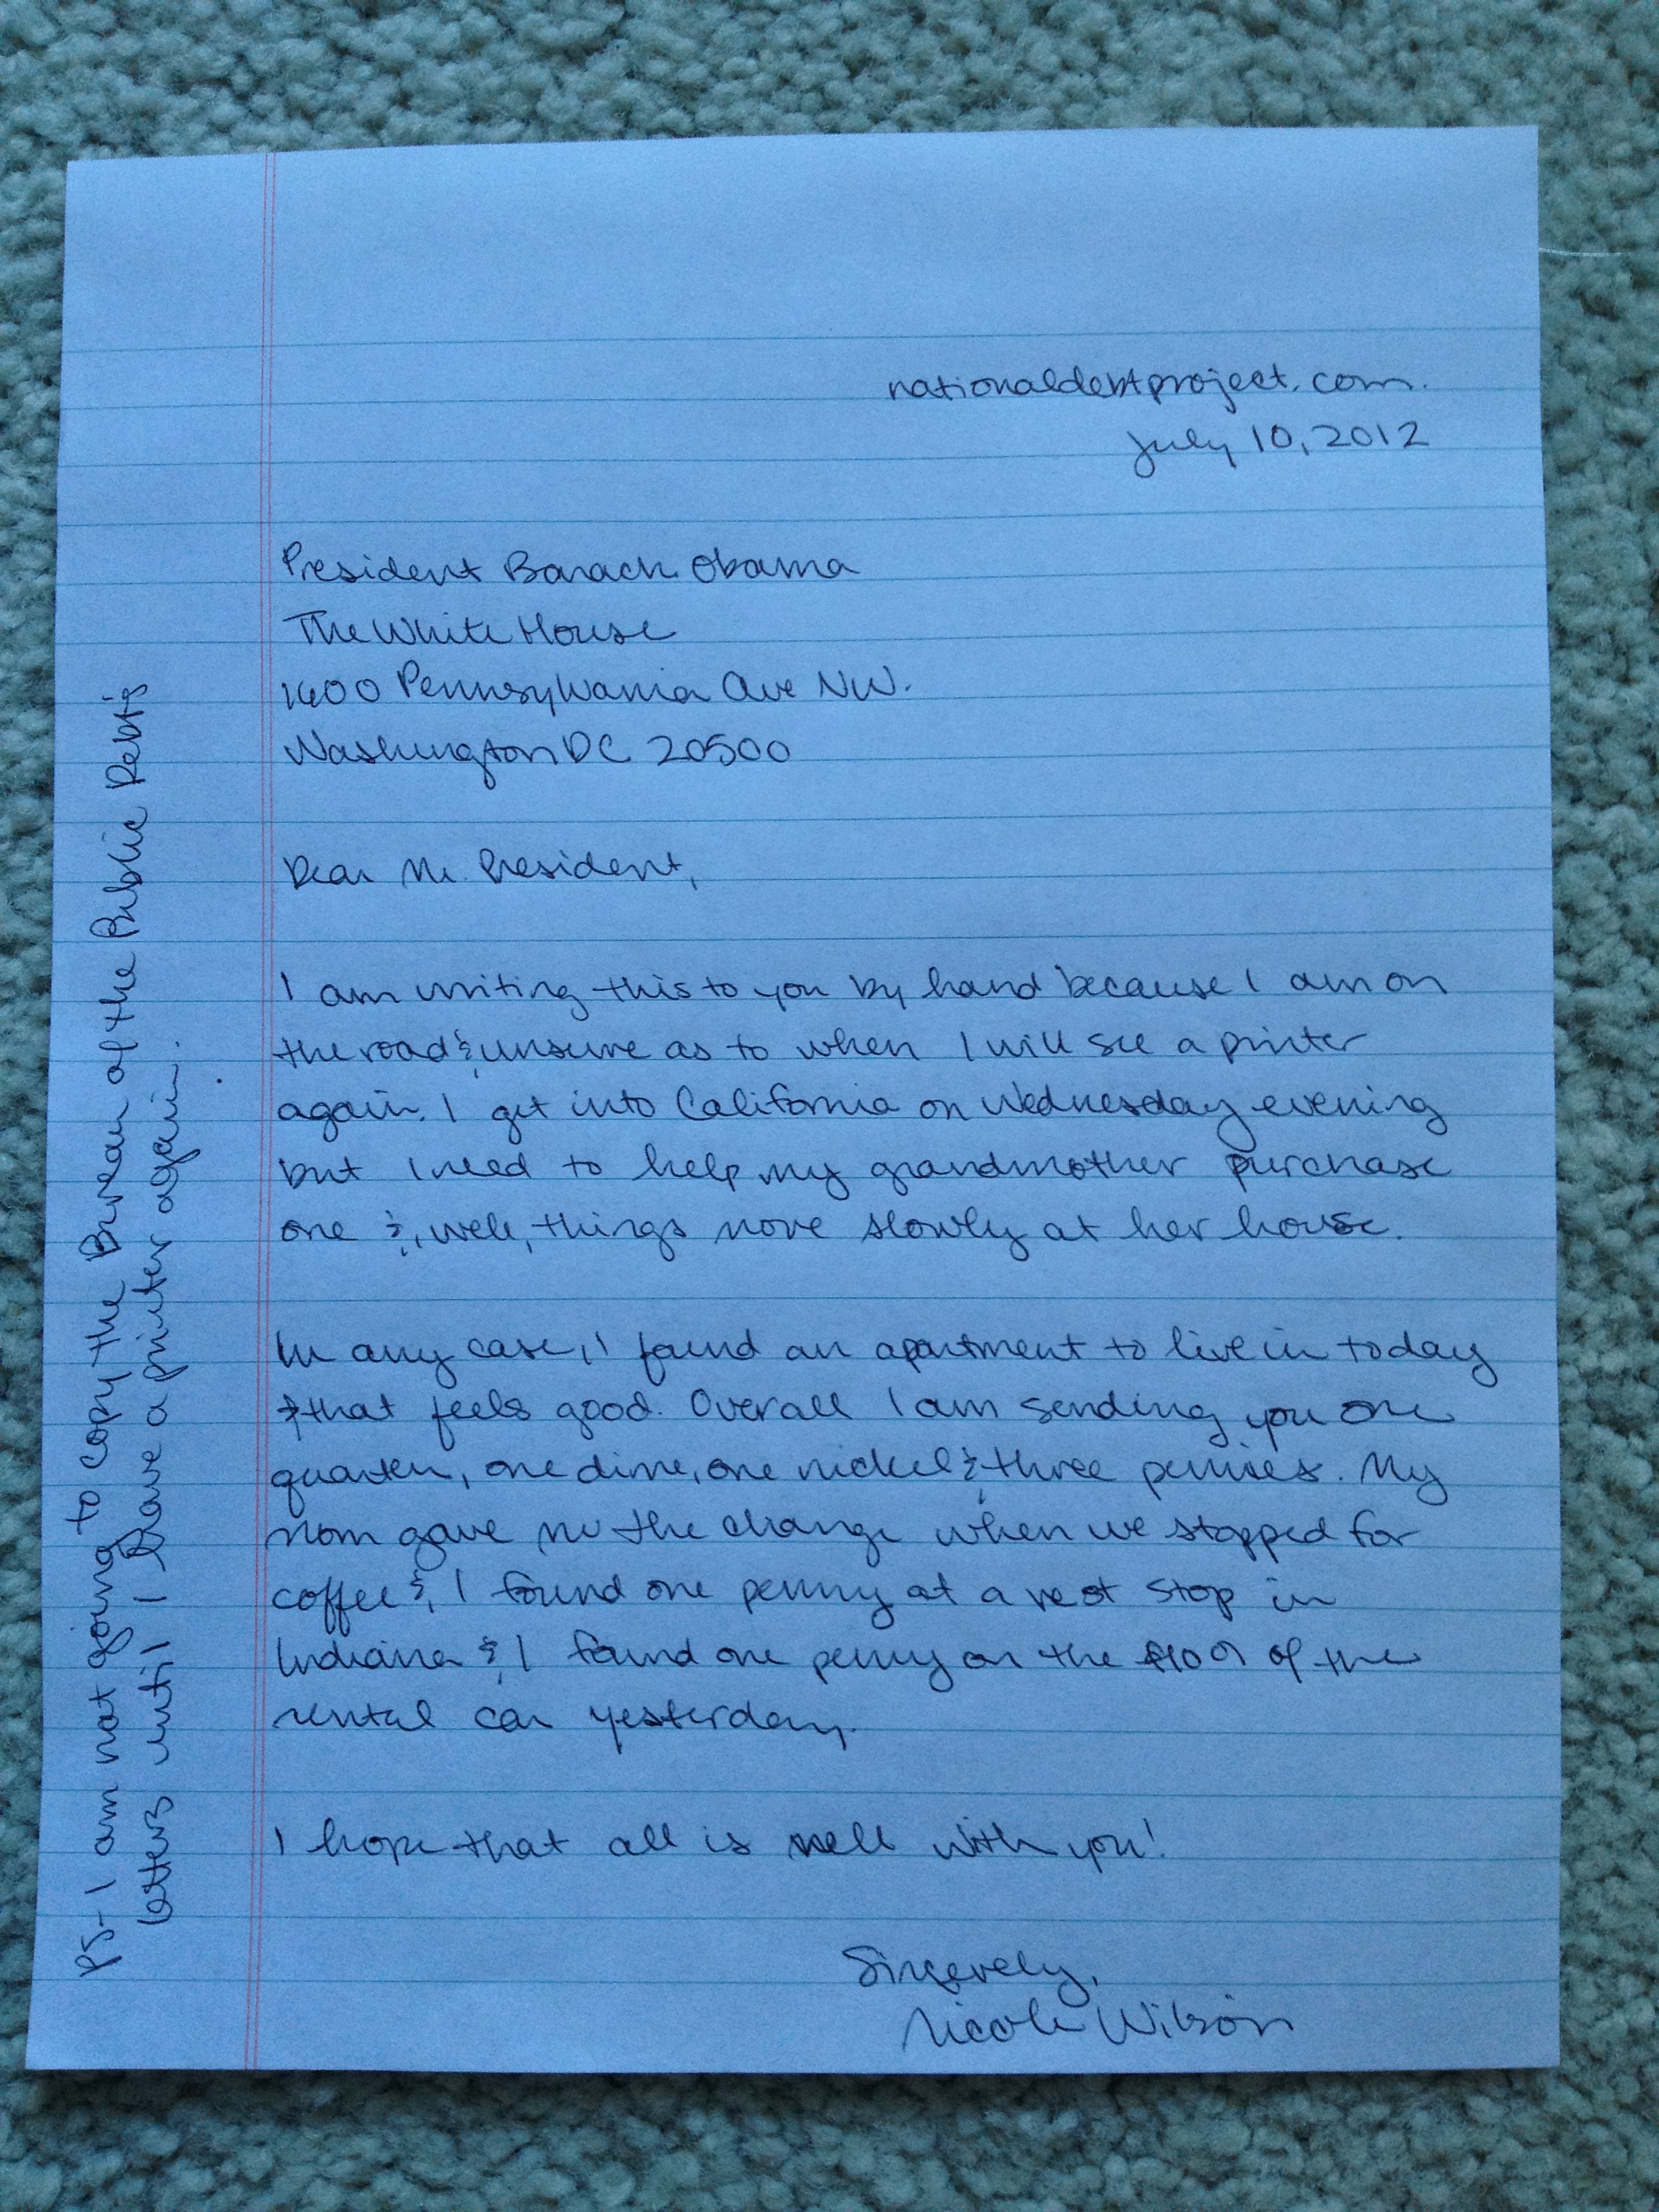 nationaldebtproject.com.
July 10, 2012
President Barack Obama
The White House
1600 Pennsylvania Ave NW.
Washington DC 20500
Dear Mr. President,
I am writing this to you by hand because I am on
the road & unsure as to when I will see a printer
again. I get into California on Wednesday evening
but I need to help my grandmother purchase
one &, well, things move slowly at her house.
In any case, I found an apartment to live in today
& that feels good. Overall I am sending you one
quarter, one dime, one nickel & three pennies. My
mom gave me the change when we stopped for
coffee & I found one penny at a rest stop in
Indiana & I found one penny on the floor of the
rental car yesterday.
I hope that all is well with you!
Sincerely,
Nicole Wilson
PS- I am not going to copy the Bureau of the Public Debt's
letters until I have a printer again.